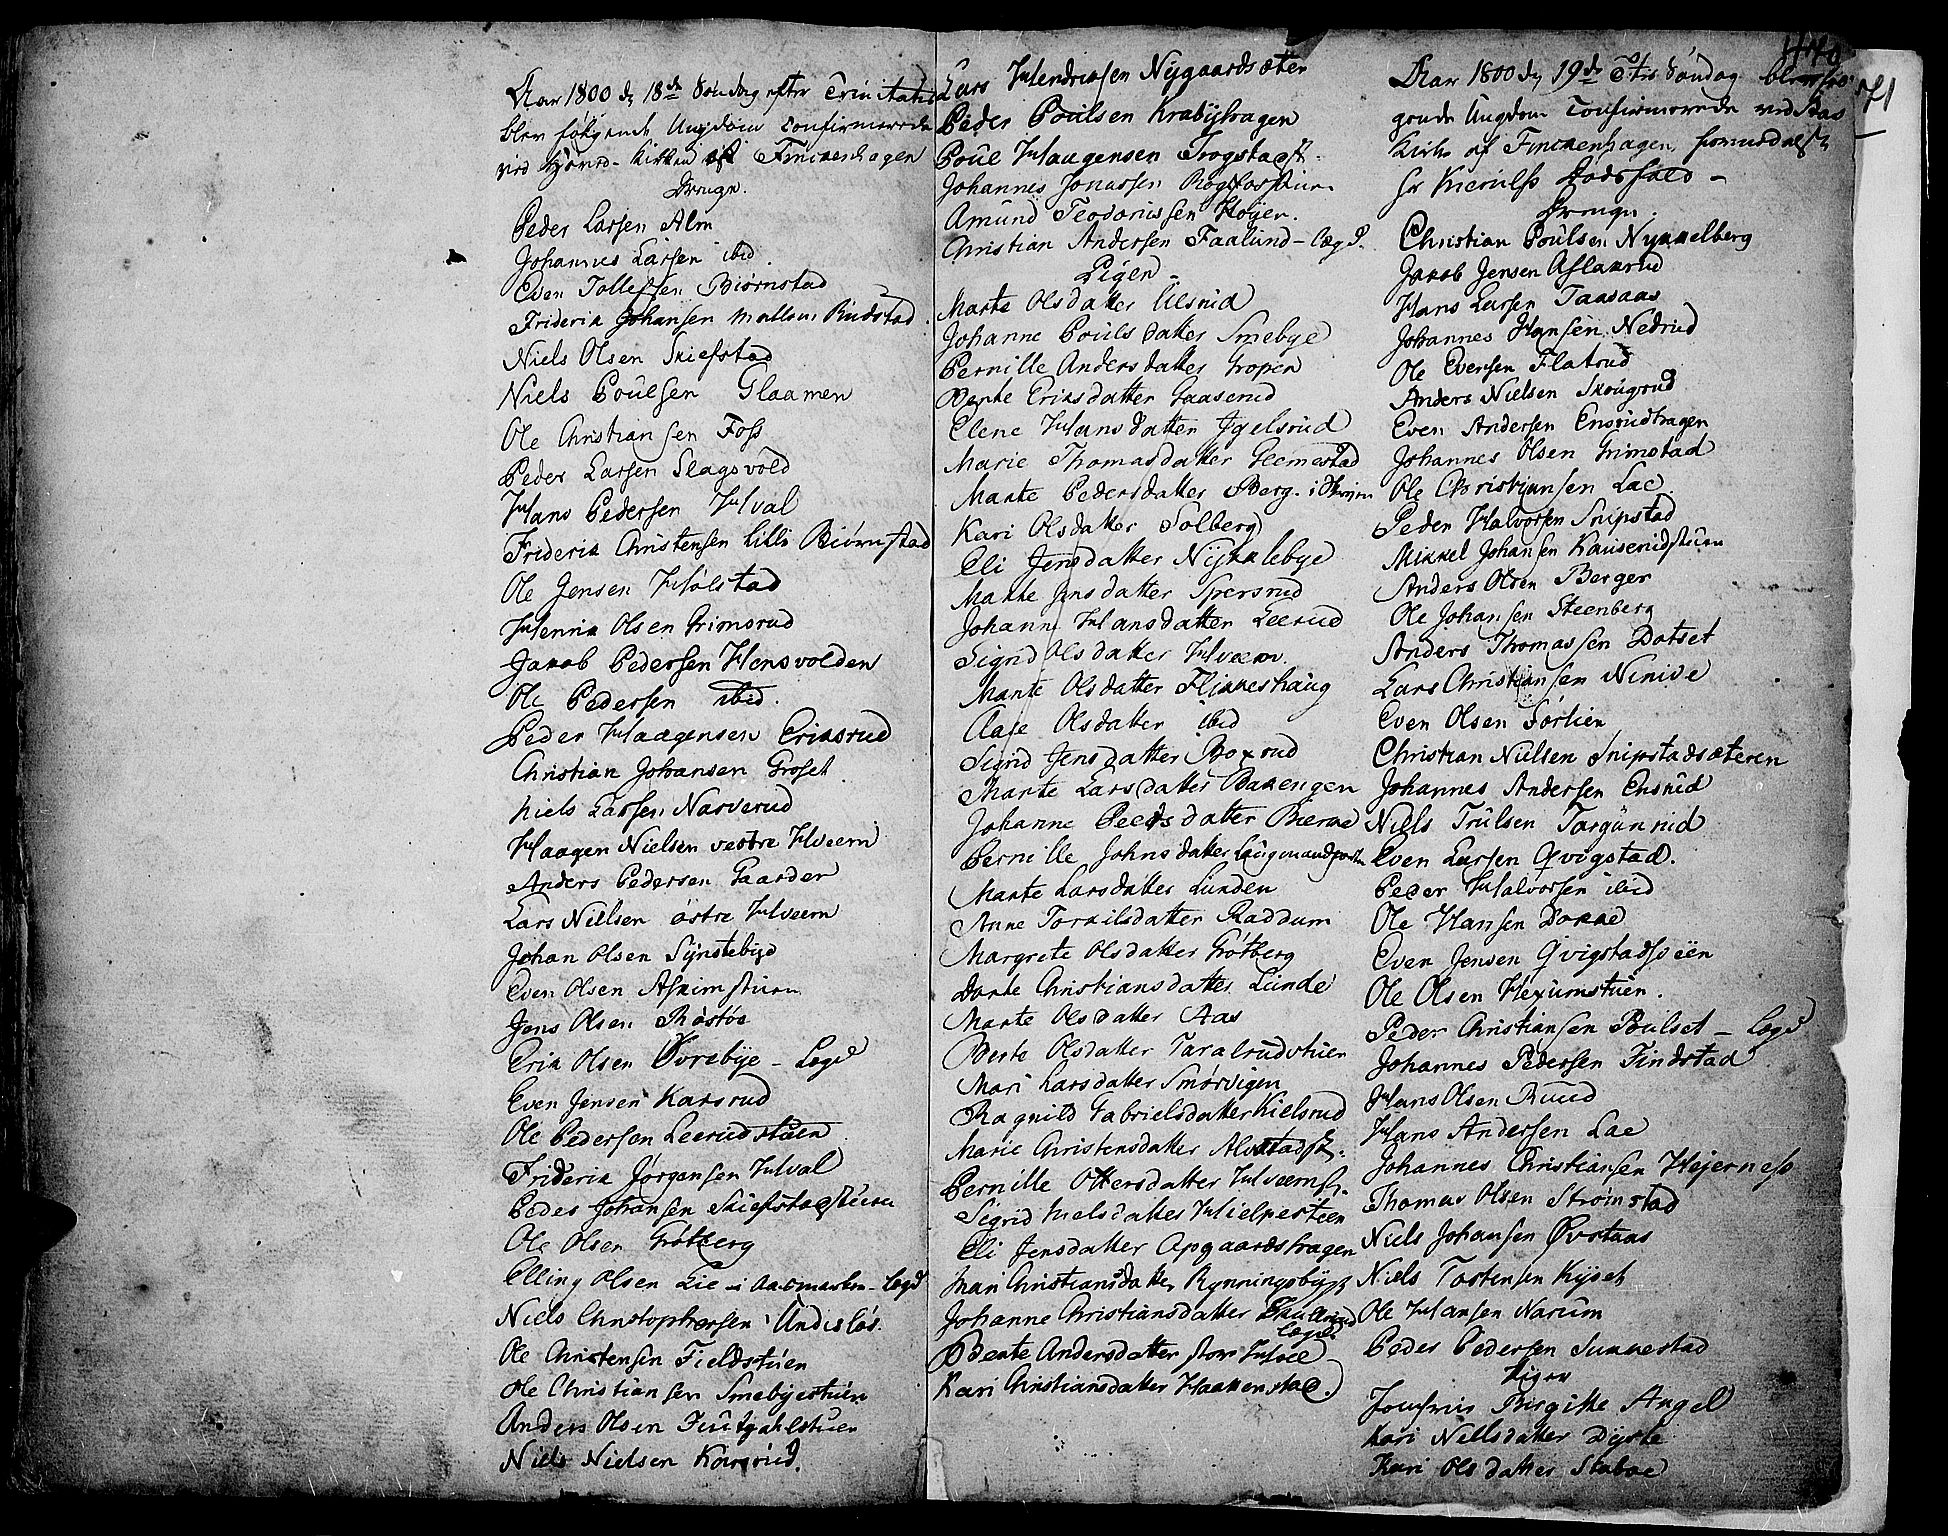 Aar 1800 d. 18de Søndag efter Trinitatis
blev følgende Ungdom Confirmerede
ved Hoved-Kirken af Finckenhagen
Drenge.
Peder Larsen Alm
Johannes Larsen ibid.
Even Tollefsen Biørnstad
Friderik Johansen mellem Rudstad
Niels Olsen Skiefstad
Niels Poulsen Glaamen
Ole Christiansen Foss
Peder Larsen Slagsvold
Hans Pedersen Hval
Friderik Christensen Lille Biørnstad
Ole Jensen Holstad
Henrik Olsen Grimsrud
Jakob Pedersen Hensvolden
Ole Pedersen ibid.
Peder Haagensen Eriksrud
Christian Johansen Groset
Niels Larsen Narverud
Haagen Nielsen vestre Hveem
Anders Pedersen Gaarder
Lars Nielsen østre Hveem
Johan Olsen Synstebye
Even Olsen Askimstuen
Jens Olsen Røstøe
Erik Olsen Øvrebye - Lægd
Even Jensen Karsrud
Ole Pedersen Leerudstuen
Friderik Jørgensen Hval
Peder Johansen Skiefstadstuen
Ole Olsen Grøtberg
Elling Olsen Lie i Aasmarken - Lægd
Niels Christophersen Undisløs.
Ole Christensen Fieldstuen
Ole Christiansen Smebyestuen
Anders Olsen Juulsahlstuen
Niels Nielsen Korsrud.
Lars Hendriksen Nygaardsæter
Peder Poulsen Krabyhagen
Poul Haagensen Trogstadst.
Johannes Jonassen
Amund Teodorissen Høyer.
Christian Andersen Faalund - Lægd.
Piger -
Marte Olsdatter Ulsrud
Johanne Poulsdatter Smebye
Pernille Andersdatter Gropen
Berte Eriksdatter Gaaserud
Elene Hansdatter Igelsrud
Marie Thomasdatter Glemestad
Marte Pedersdatter Berg i
Kari Olsdatter Solberg
Eli Jensdatter Nykklebye
Marte Jensdatter Spersrud
Johanne Hansdatter Leerud
Sigrid Olsdatter Hveem.
Marte Olsdatter Flikkeshaug
Aase Olsdatter ibid
Sigrid Jensdatter Boxrud
Marte Larsdatter Bakkengen
Johanne Peersdatter Bierke
Pernille Johnsdatter
Marte Larsdatter Lunden
Anne Torkilsdatter Raddum
Margrete Olsdatter Grøtberg
Dorte Christiansdatter Lunde
Marte Olsdatter Aas
Berte Olsdatter Taralrudstuen
Mari Larsdatter Smørvigen
Ragnild Gabrielsdatter Kielsrud
Marie Christensdatter Alvstadst.
Pernille Ottersdatter Hveemst.
Sigrid Nielsdatter Hielpestuen
Eli Jensdatter Opgaardshagen
Mari Christiansdatter Rynningsbygg
Johanne Christiansdatter
Lægd
Bente Andersdatter store Hvee
Kari Christiansdatter Haakenstad.
Aar 1800 d. 19de Søndag blev føl
gende Ungdom Confirmerede ved Aas
Kirke af Finckenhagen formedelst
Hr Kierulfs Dødsfald -
Drenge.
Christian Poulsen Nykkelberg
Jakob Jensen Aslakrud
Hans Larsen Taasaas
Johannes Hansen Nedrud
Ole Evensen Flatrud
Anders Nielsen Skougrud
Even Andersen Ensrudhagen
Johannes Olsen Grimstad
Ole Christiansen Lae
Peder Halvorsen Snipstad
Mikkel Johansen Kauserudstuen
Anders Olsen Berger
Ole Johansen Steenberg
Anders Thomassen Dotset
Lars Christiansen Ninive
Even Olsen Sørlien
Christian Nielsen Snipstadsæteren
Johannes Andersen Ensrud
Niels Trulsen Torgunrud
Even Larsen Qvigstad.
Peder Halvorsen ibid
Ole Hansen Dokke
Even Jensen Qvigstadsveen
Ole Olsen Hexumstuen.
Peder Christiansen Poulset - Lægd
Johannes Pedersen Findstad
Hans Olsen Ruud
Hans Andersen Lae
Johannes Christiansen Hejerness
Thomas Olsen Strømstad
Niels Johansen Øvstaas
Niels Tostensen Kyset
Ole Hansen Narum
Peder Pedersen Sukkestad
Piger
Jomfrue Birgitte Angel
Kari Nielsdatter Dyste
Kari Olsdatter Staboe
71